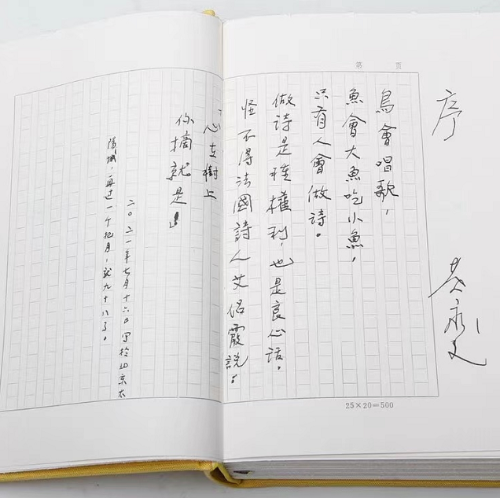 序
黄永玉
第 頁
鳥會唱歌，
魚會大魚吃小魚，
只有人會做詩。
做詩是種權利，也是良心話。
怪不得法國詩人艾侶霞說：
「心在樹上
你摘就是！」
二〇二一年七月十六日寫於北京太
陽城，再过一个把月，就九十八了。
25×20=500